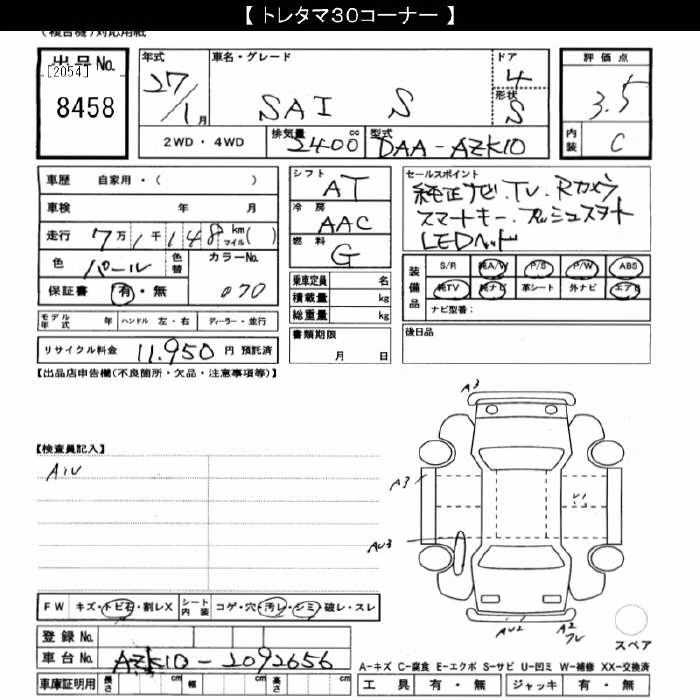 【 トレタマ30コーナー 】
(複合機)対応用紙
出品No.
[2054]
8458
年式
27/1月
車名・グレード
SAI S
ドア
4
形状
S
評価点
3.5
内装
C
2WD・4WD
排気量
2400 cc
型式
DAA-AZK10
車歴 自家用・( )
車検 年 月
走行 7万1千148 km マイル( )
色 パール 色替 カラーNo.
070
保証書 有・無
モデル年式 年 ハンドル 左・右 ディーラー・並行
リサイクル料金 11,950 円 預託済
シフト
AT
冷房
AAC
燃料
G
乗車定員 名
積載量 kg
総重量 kg
書類期限
月 日
セールスポイント
純正ナビ.TV.Rカメラ
スマートキー.プッシュスタート
LEDヘッド
装備品
S/R 純A/W P/S P/W ABS
純TV 純ナビ 革シート 外ナビ エアB
ナビ型番:
後日品
【出品店申告欄(不良箇所・欠品・注意事項等)】
【検査員記入】
A1U
A3
A3
AU3
AU2
A2
FW キズ・トビ石・割レX シート内装 コゲ・穴・汚レ・シミ・破レ・スレ
登録No.
車台No. AZK10-2092656
車庫証明用 長さ cm 幅 cm 高さ cm
スペア
A-キズ C-腐食 E-エクボ S-サビ U-凹ミ W-補修 XX-交換済
工具 有・無 ジャッキ 有・無